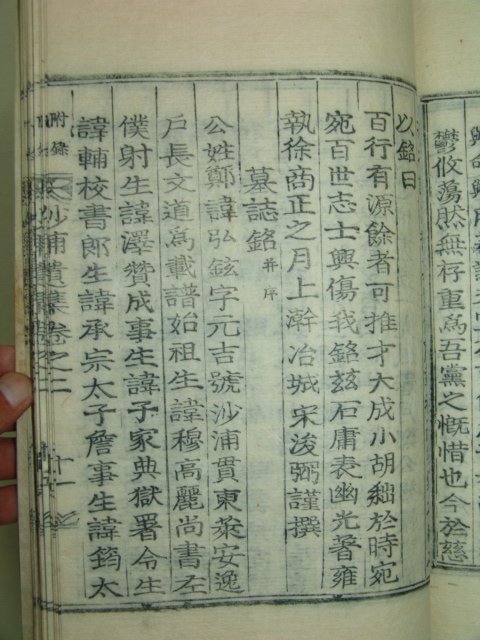 鬱攸蕩然無存重爲吾黨之慨惜也今於慈
以銘曰
百行有源餘者可推才大成小胡黜於時宛
宛百世志士興傷我銘玆石庸表幽光著雍
執徐啇正之月上澣冶城宋浚弼謹撰
墓誌銘 并序
公姓鄭諱弘鉉字元吉號沙浦貫東萊安逸
戶長文道爲載譜始祖生諱穆高麗尚書左
僕射生諱澤贊成事生諱子家典獄署令生
諱輔校書郎生諱承宗太子詹事生諱筠太
附錄
沙浦遺集卷之二
十一